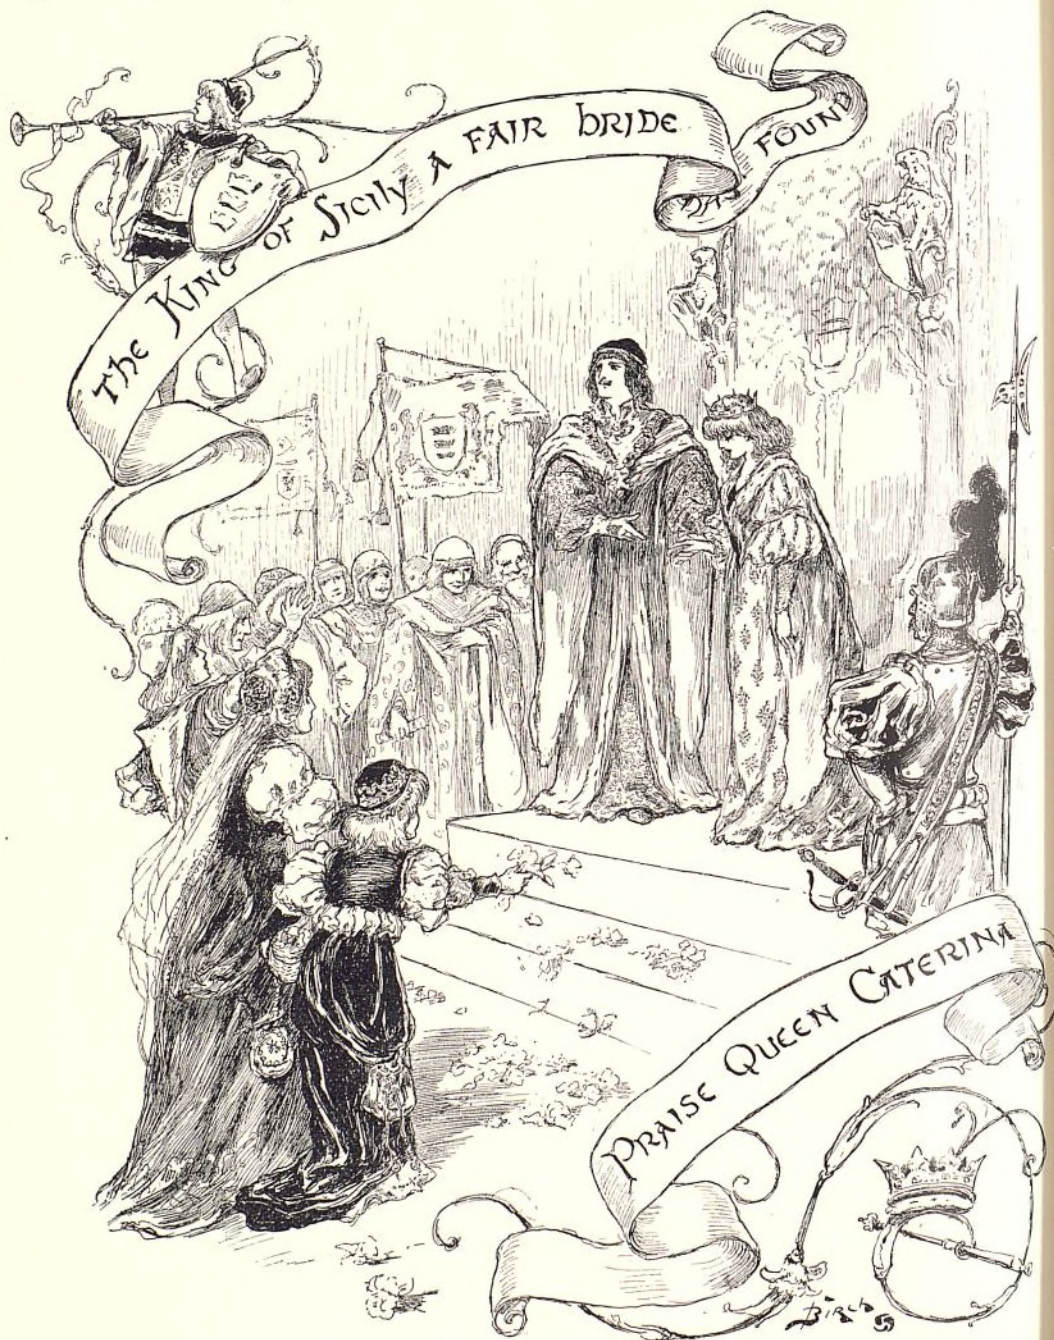 The King of Sicily a fair bride ha found
Praise Queen Caterina
Birch